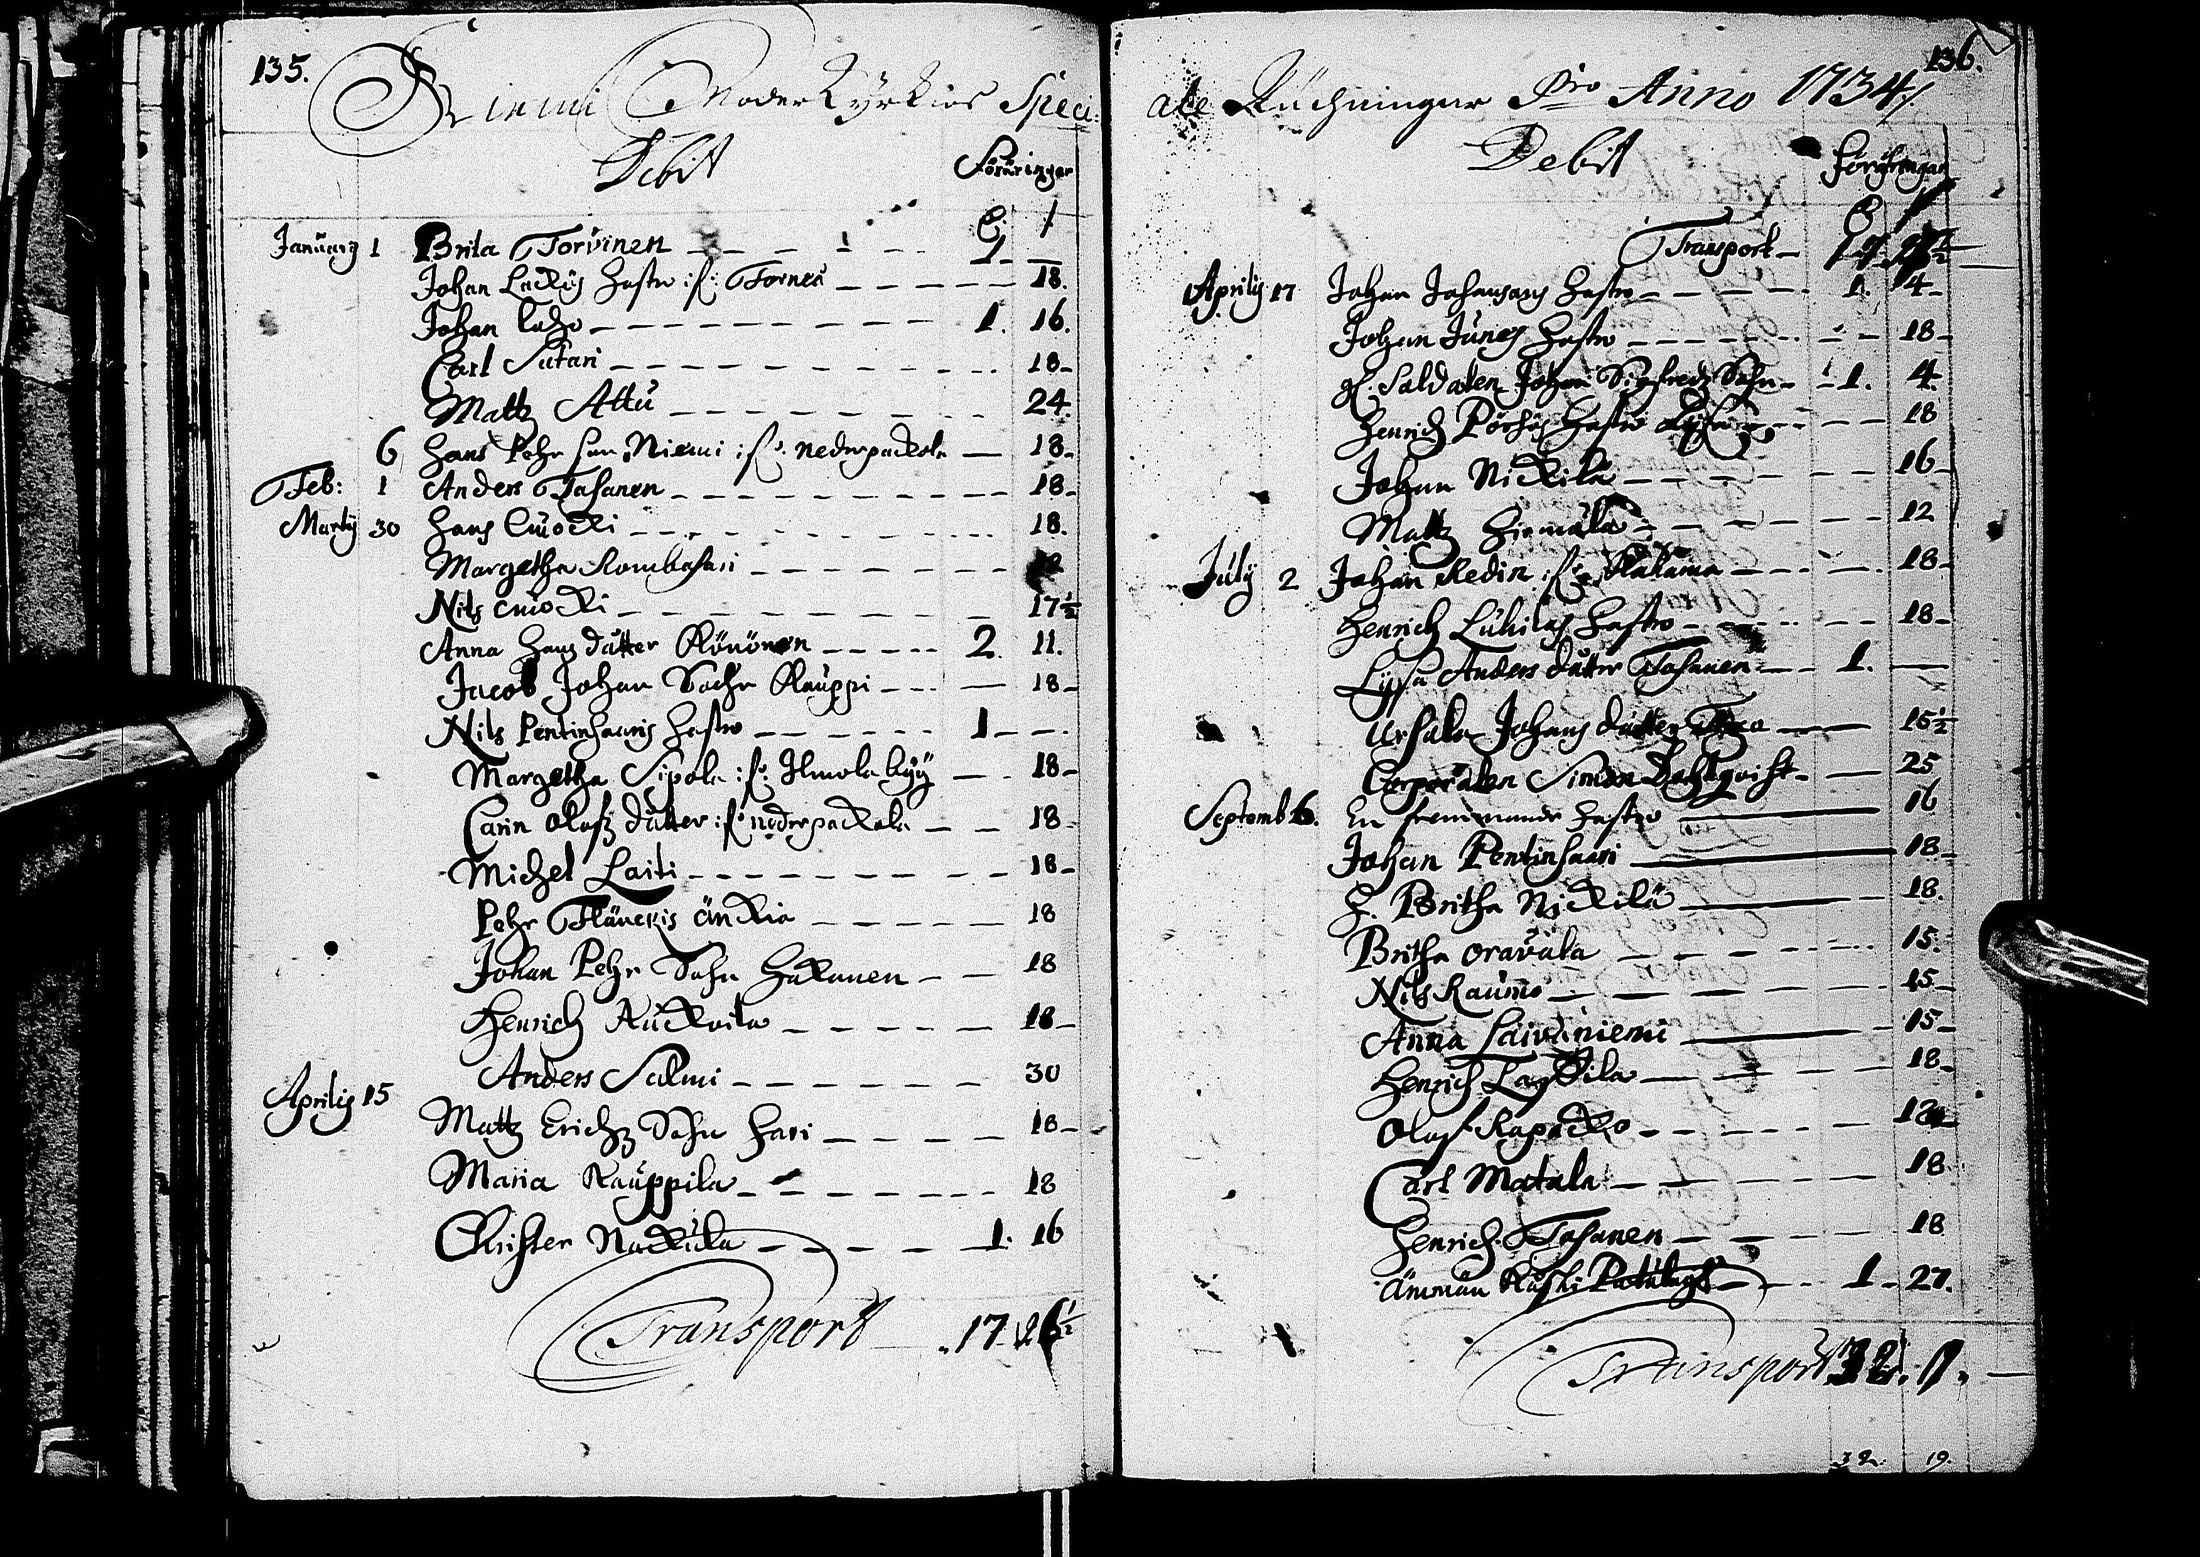 135.
Kiemi Moder Kyrkios Speci-
Debit Föräringer
January 1 Brita Torvinen 1 —
Johan Lackis Hustro Tornea 18.
Johan Laho 1. 16.
Carl Sutari 18
Matts Attu 24.
6 Hans Pehrson Niemi nederpackola 18
Feb: 1 Anders Tasanen 18
Martij 30 Hans Cuiocki 18.
Margetha Kombasari
Nils Cuiocki 17½
Anna Hans dåtter Könönen 2. 11.
Jacob Johan Sohn Kauppi 18
Nils Pentinsaaris Hustro 1 —
Margetha Sipola Ilmola byy 18
Carin Olafz dåtter nederpackola 18
Michel Laiti 18
Pehr Flänckis änckia 18
Johan Pehr Sohn Hakanen 18
Henrich Auckoila 18
Anders Salmi 30
Aprilis 15 Matts Erichz Sohn Hari 18
Maria Kauppila 18
Christer Nackula 1. 16
Transport 17. 26½
136.
ale Räckningar Pro Anno 1734
Debit Föräringar
Transport
Aprilis 17 Johan Johansons Hustro 1. 4
Johan Junes Hustro 18
Soldaten Johan Sigfredz Sohn 1. 4
Henrich Pörhös Hustro 18
Johan Nickilä 16
Matts Hirmula 12
July 2 Johan Redin Kakama 18
Henrich Luhilas Hustro 18
Lysa Anders dåtter Tasanen 1. —
Ursula Johans dåtter 15½
Corporalen Simon Dahlqvist 25
Septemb 6. En fremmande Hustro 16
Johan Pentinsaari 18
H. Britha Nickilä 18.
Britha Oravala 15
Nils Raumo 15
Anna Laivaniemi 15
Henrich Laskila 18
Olof Kapocko
Carl Matala 18
Henrich Tasanen 18
Ämmän Koski Patulage 1 27.
Transport
32. 19.